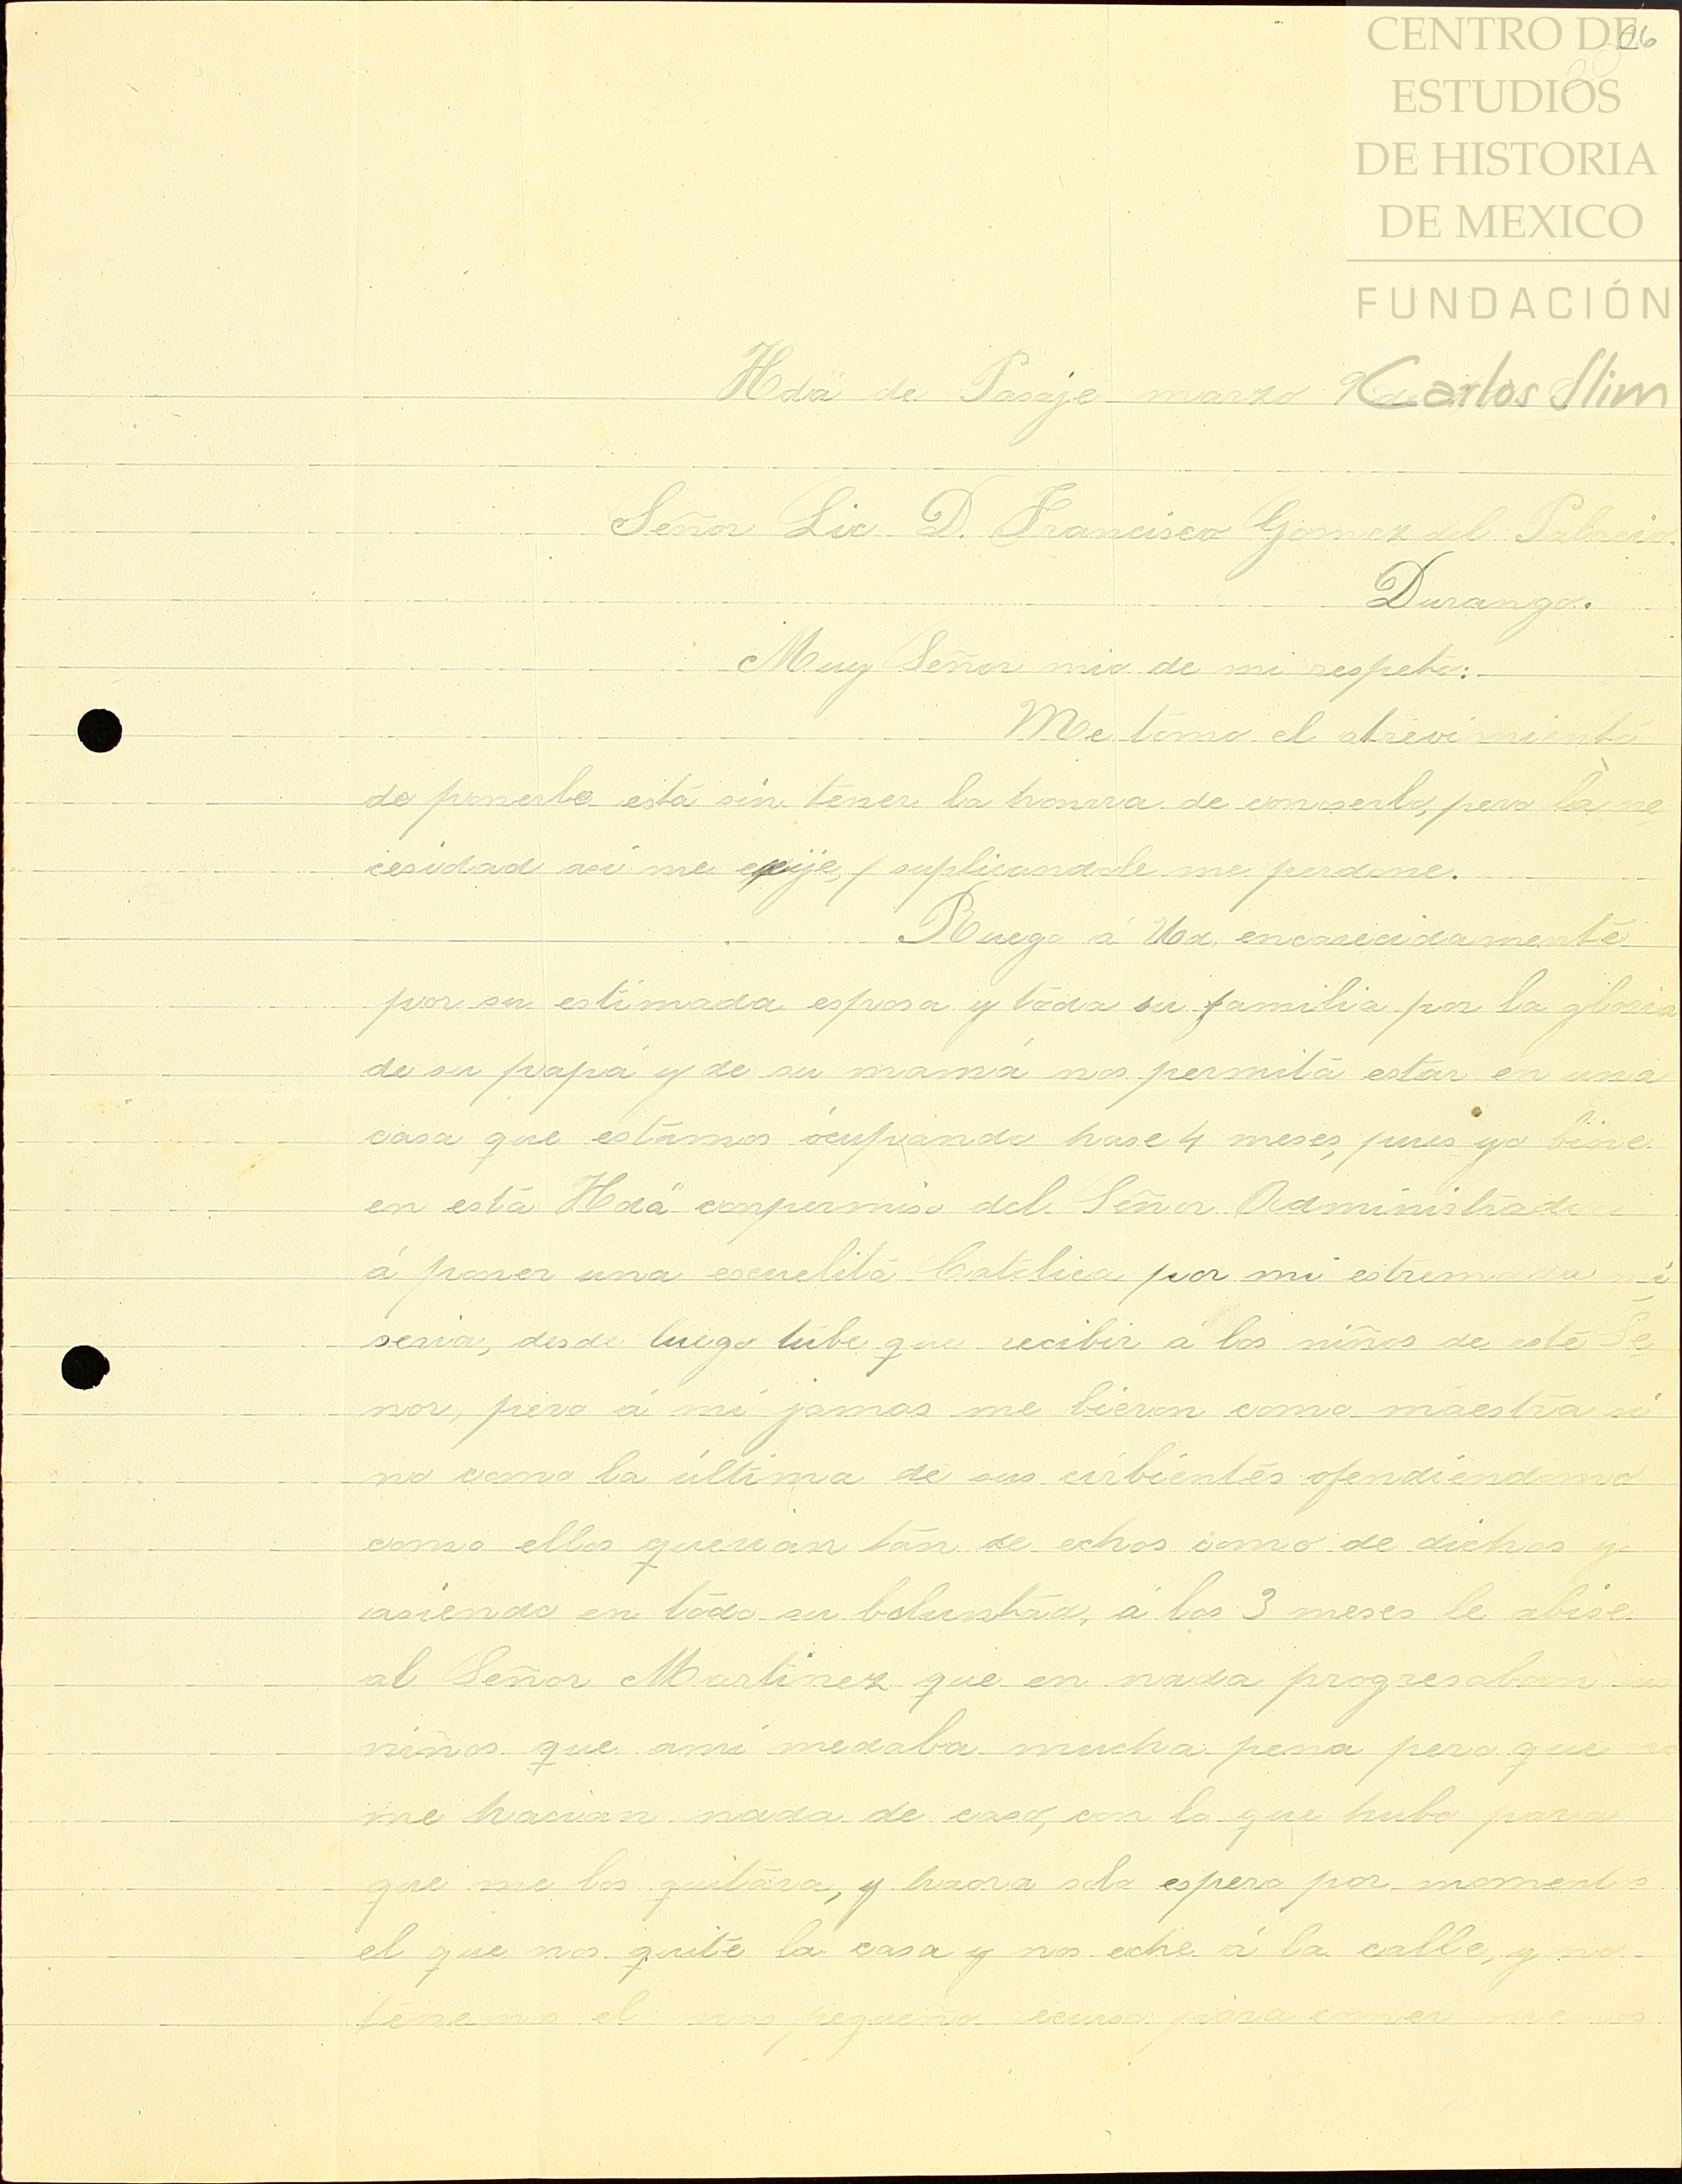 CENTRO DE
ESTUDIOS
DE HISTORIA
DE MEXICO
FUNDACIÓN
Carlos Slim
Hdā de Pasaje marzo 9 de
Señor Lic. D. Francisco Gómez del Palacio.
Durango.
Muy Señor mio de mi respeto:
Me tomo el atrevimiento
de ponerle está sin tener la honrra de conoserlo, pero la ne
cesidad asi me exije, suplicandole me perdone.
Ruego á Ud. encarecidamente
por su estimada esposa y toda su familia por la gloria
de su papá y de su mamá nos permita estar en una
casa que estamos ocupando hase 4 meses, pues yo bine
en está Hdā conpermiso del Señor Administrador
á poner una escuelita Catolica por mi estremada mi
seria, desde luego tube que recibir á los niños de este Se
ñor, pero á mi jamas me bieron como maestra si
no como la última de sus cirbientes ofendiendome
como ellos querian tan de echos como de dichos y
asiendo en todo su boluntad, á los 3 meses le abise
al Señor Martinez que en nada progresaban sus
niños que ami medaba mucha pena pero que no
me hacian nada de caso, con lo que hubo para
que me los quitára, y haora solo espero por momentos
el que nos quite la casa y nos eche á la calle, y no
tenemos el mas pequeño recurso para comer menos